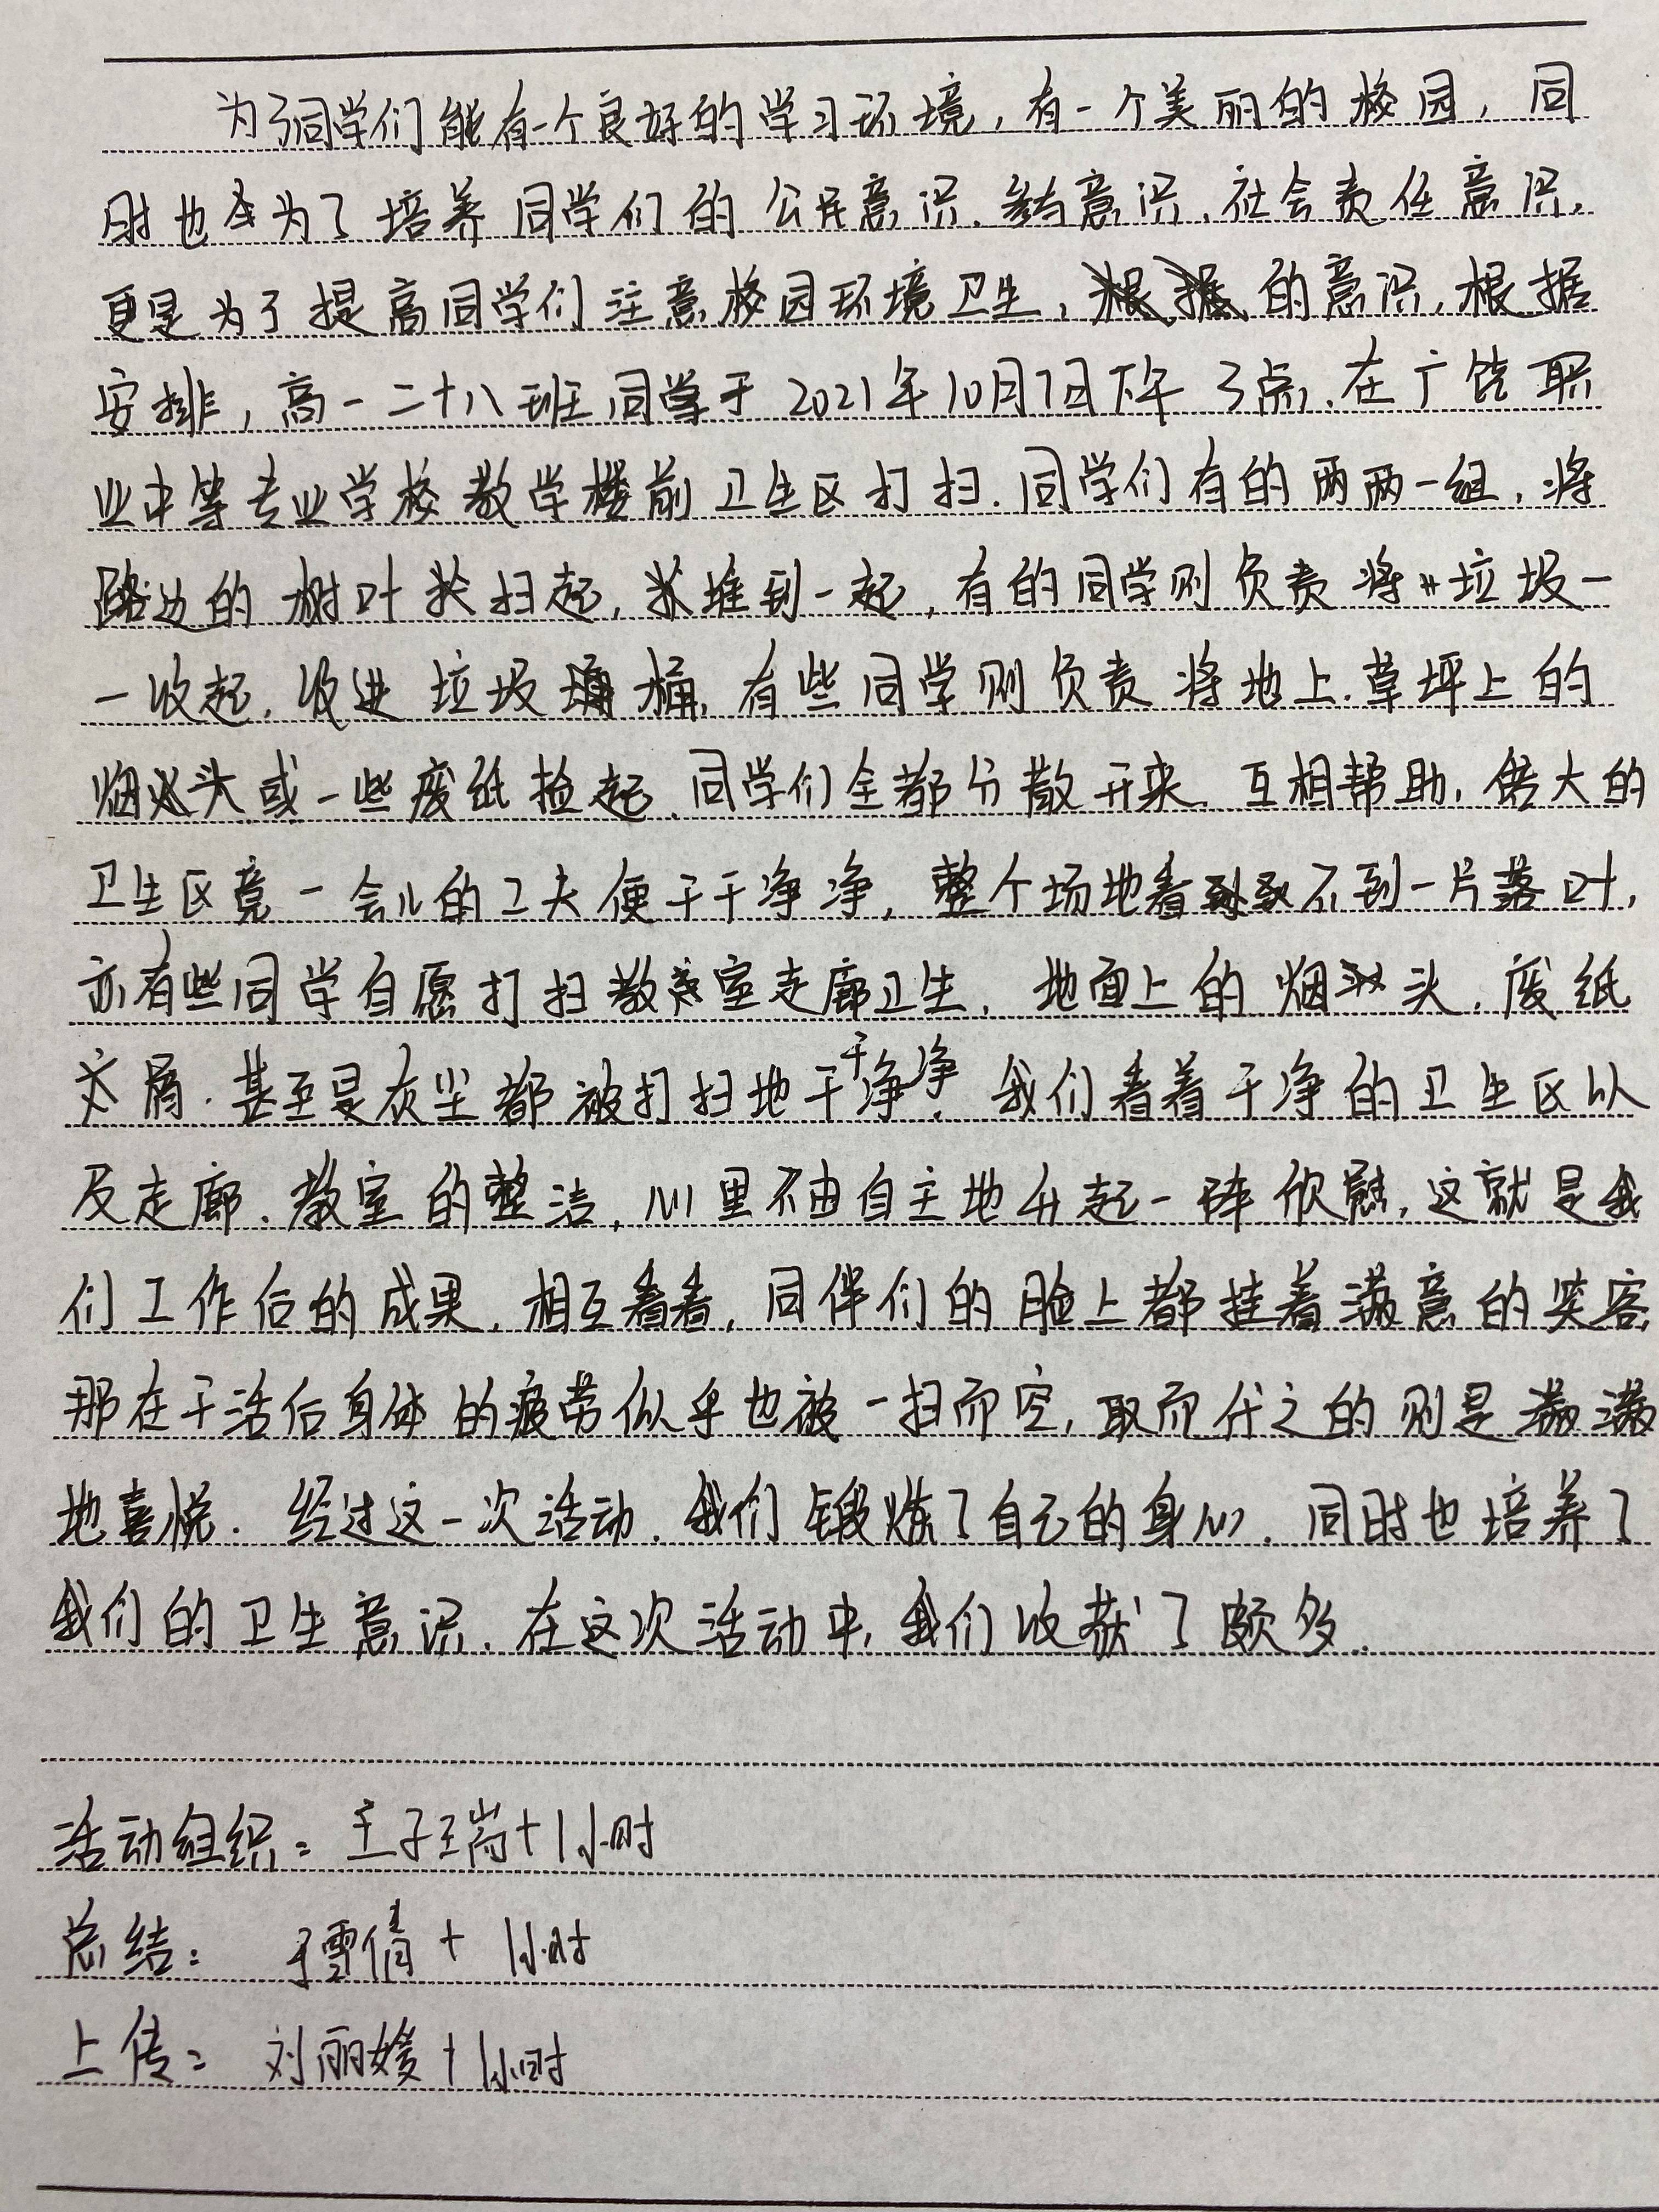 为了同学们能有一个良好的学习环境，有一个美丽的校园，同
时也为了培养同学们的公民意识、参与意识、社会责任意识，
更是为了提高同学们注意校园环境卫生，的意识，根据
安排，高一二十八班同学于2021年10月7日下午3点，在广饶职
业中等专业学校教学楼前卫生区打扫．同学们有的两两一组，将
路边的树叶扫起，堆到一起，有的同学则负责将垃圾一
一收起，收进垃圾桶，有些同学则负责将地上、草坪上的
烟头或一些废纸捡起．同学们全都分散开来．互相帮助，偌大的
卫生区竟一会儿的工夫便干干净净，整个场地看不到一片落叶，
亦有些同学自愿打扫教室走廊卫生，地面上的烟头、废纸
屑．甚至是灰尘都被打扫地干干净净，我们看着干净的卫生区以
及走廊、教室的整洁，心里不由自主地升起一阵欣慰，这就是我
们工作后的成果，相互看看，同伴们的脸上都挂着满意的笑容，
那在干活后身体的疲劳似乎也被一扫而空，取而代之的则是满满
地喜悦．经过这一次活动．我们锻炼了自己的身心．同时也培养了
我们的卫生意识．在这次活动中，我们收获了颇多．
活动组织：王子瑞+1小时
总结：于雪倩+1小时
上传：刘丽媛+1小时